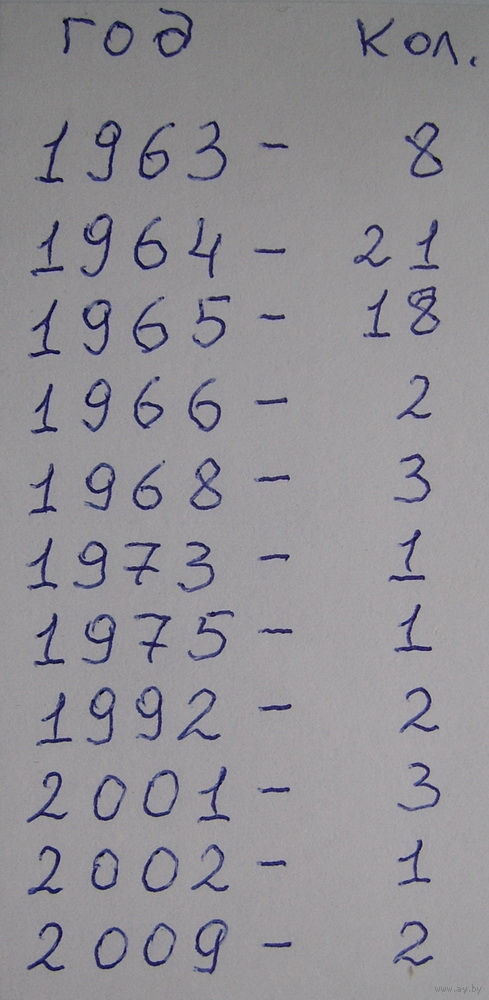 год кол.
1963 - 8
1964 - 21
1965 - 18
1966 - 2
1968 - 3
1973 - 1
1975 - 1
1992 - 2
2001 - 3
2002 - 1
2009 - 2
www.ay.by